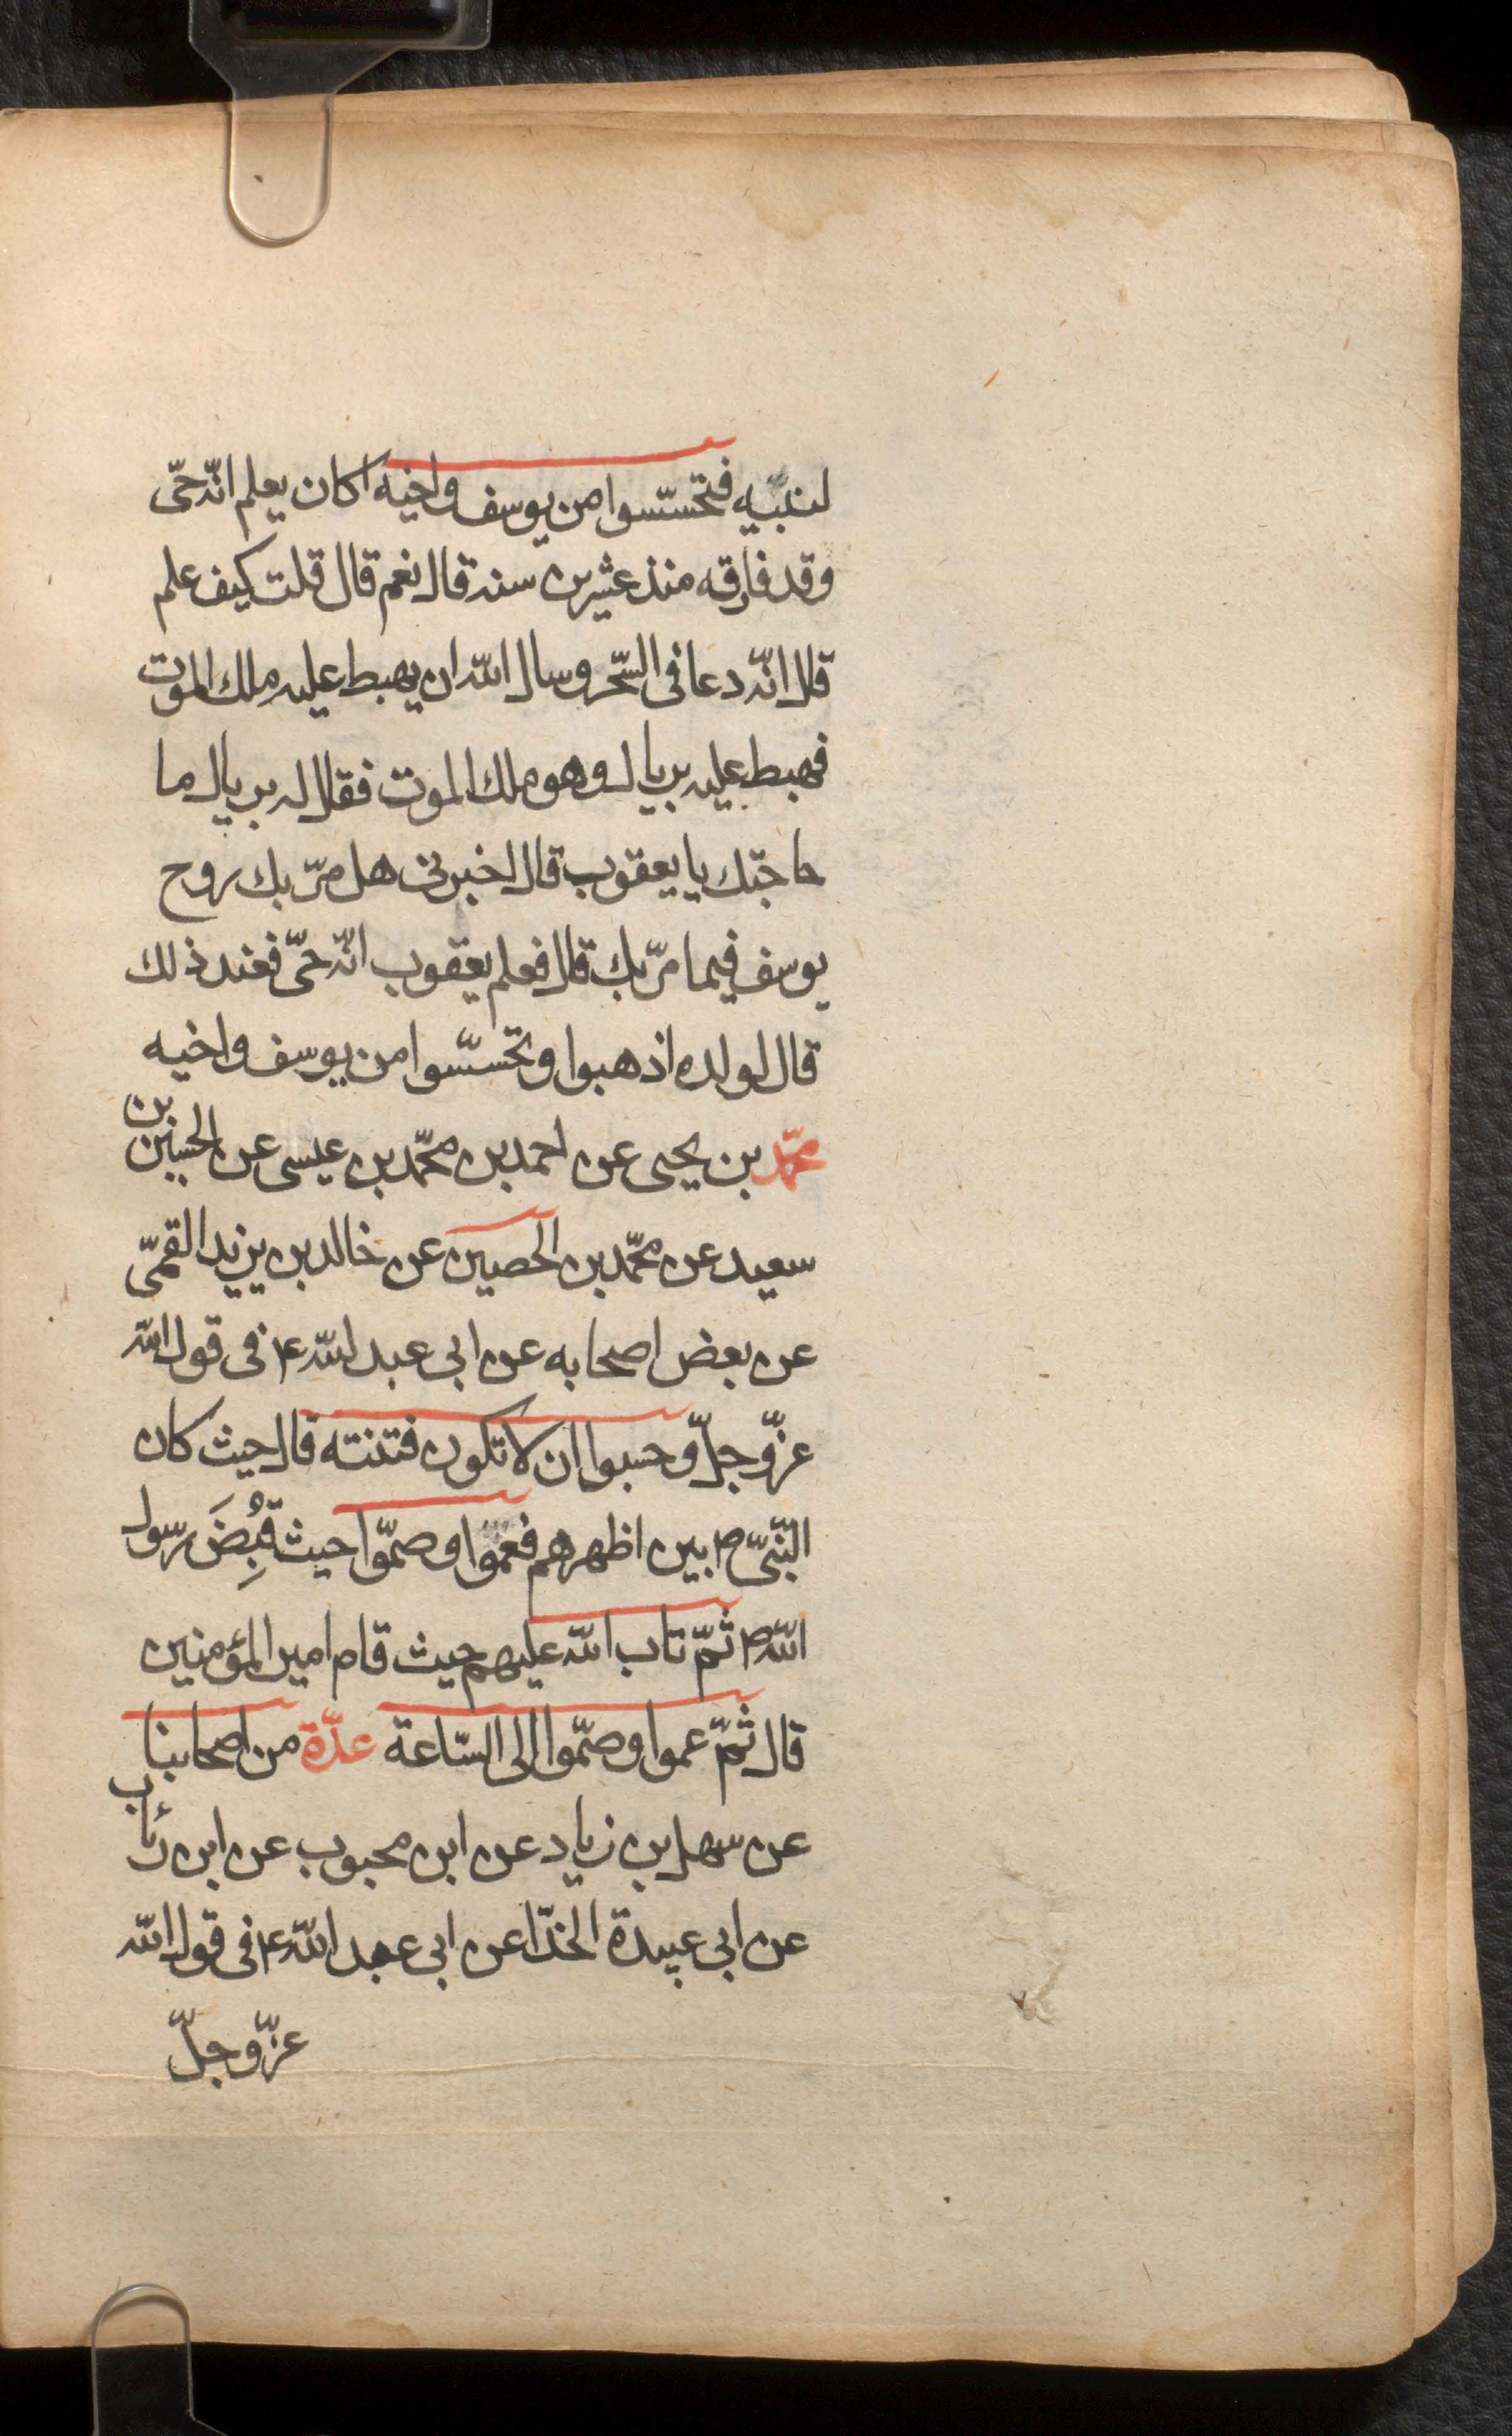 لنبّيه فتحسّسوا من يوسف واخيه اكان يعلم انّه حىّ
وقد فارقه منذ عشرين سنة قال نعم قال قلت كيف علم
قال انّه دعا فى السّحر وسال اللّه ان يهبط عليه ملك الموت
فهبط عليه بريال وهو ملك الموت فقال له بريال ما
حاجتك يا يعقوب قال اخبرنى هل مرّ بك روح
يوسف فيما مرّ بك قال فعلم يعقوب انّه حىّ فعند ذلك
قال لولده اذهبوا وتحسّسوا من يوسف واخيه
محمّد بن يحيى عن احمد بن محمّد بن عيسى عن الحسين بن
سعيد عن محمّد بن الحصين عن خالد بن يزيد القمّى
عن بعض اصحابه عن ابى عبد اللّه ع فى قول اللّه
عزّ وجلّ وحسبوا ان لا تكون فتنته قال حيث كان
النّبىّ ص بين اظهرهم فعموا وصمّوا حيث قُبِضَ رسول
اللّه ص ثمّ تاب اللّه عليهم حيث قام امير المؤمنين
قال ثمّ عموا وصمّوا الى السّاعة عدّة من اصحابنا
عن سهل بن زياد عن ابن محبوب عن ابن رئاب
عن ابى عبيدة الحذّا عن ابى عبد اللّه ع فى قول اللّه
عزّ وجلّ